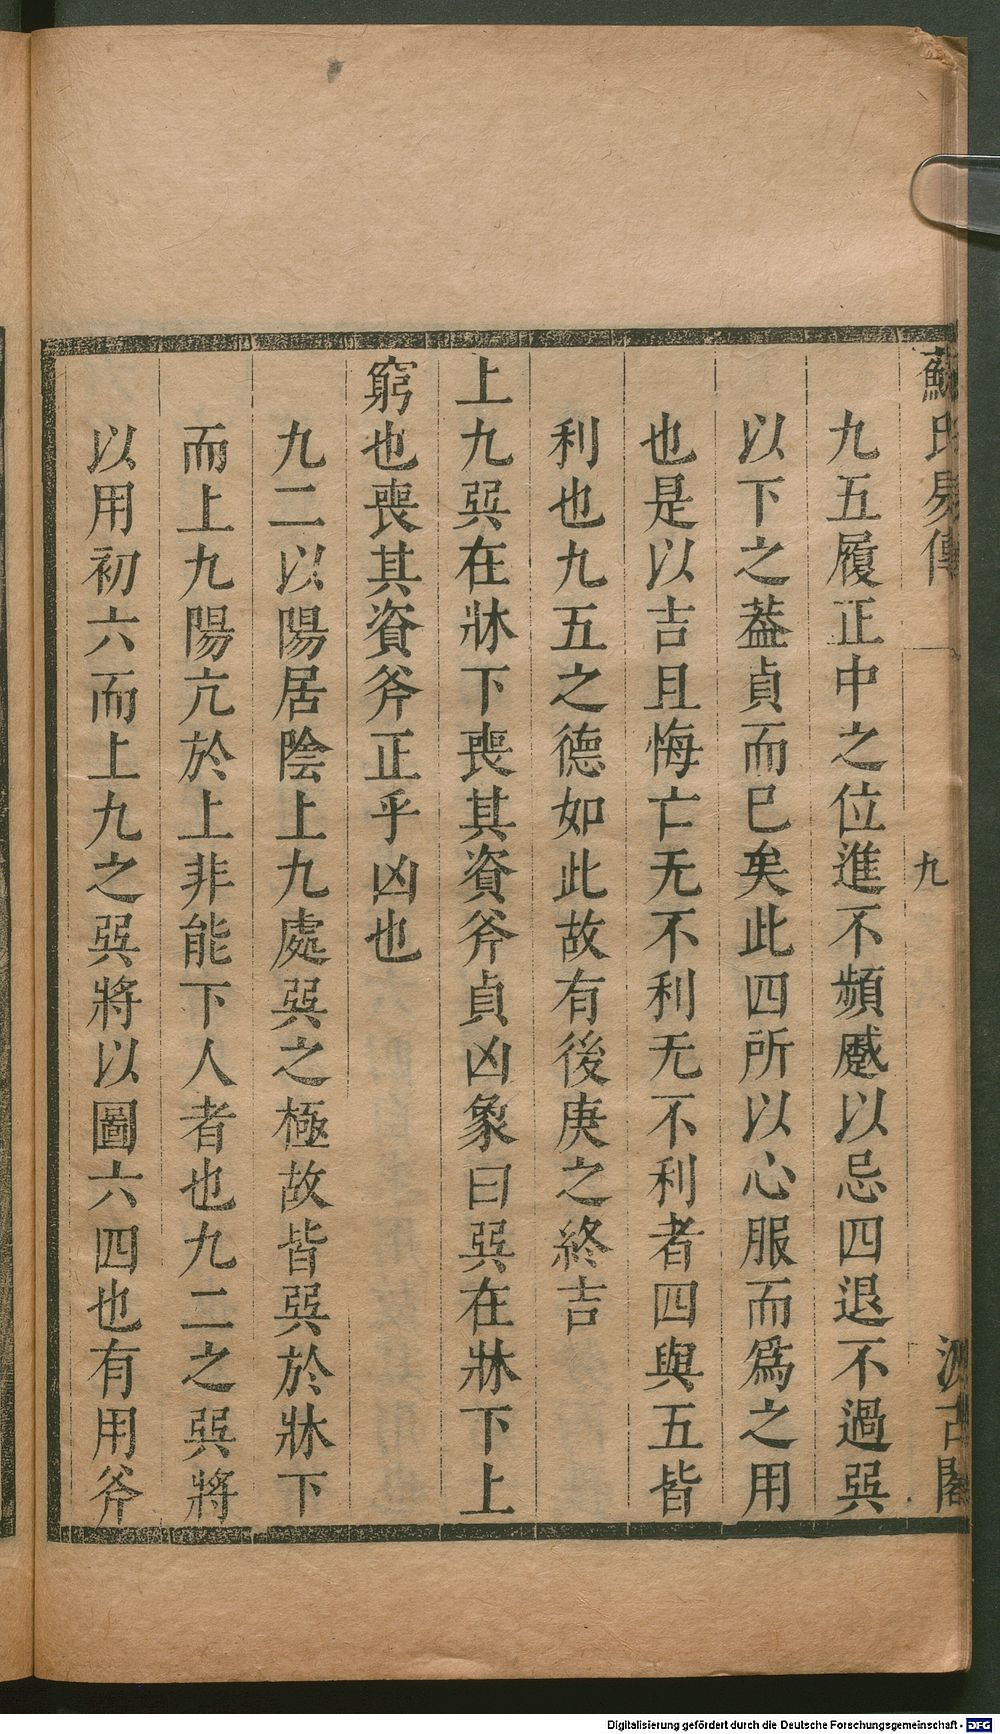 蘇氏易傳
九
汲古閣
九五履正中之位進不頻蹙以忌四退不過㢲
以下之葢貞而已矣此四所以心服而爲之用
也是以吉且悔亡无不利无不利者四與五皆
利也九五之德如此故有後庚之終吉
上九㢲在牀下喪其資斧貞凶象曰㢲在牀下上
窮也喪其資斧正乎凶也
九二以陽居陰上九處㢲之極故皆㢲於牀下
而上九陽亢於上非能下人者也九二之㢲將
以用初六而上九之㢲將以圖六四也有用斧
Digitalisierung gefördert durch die Deutsche Forschungsgemeinschaft - DFG